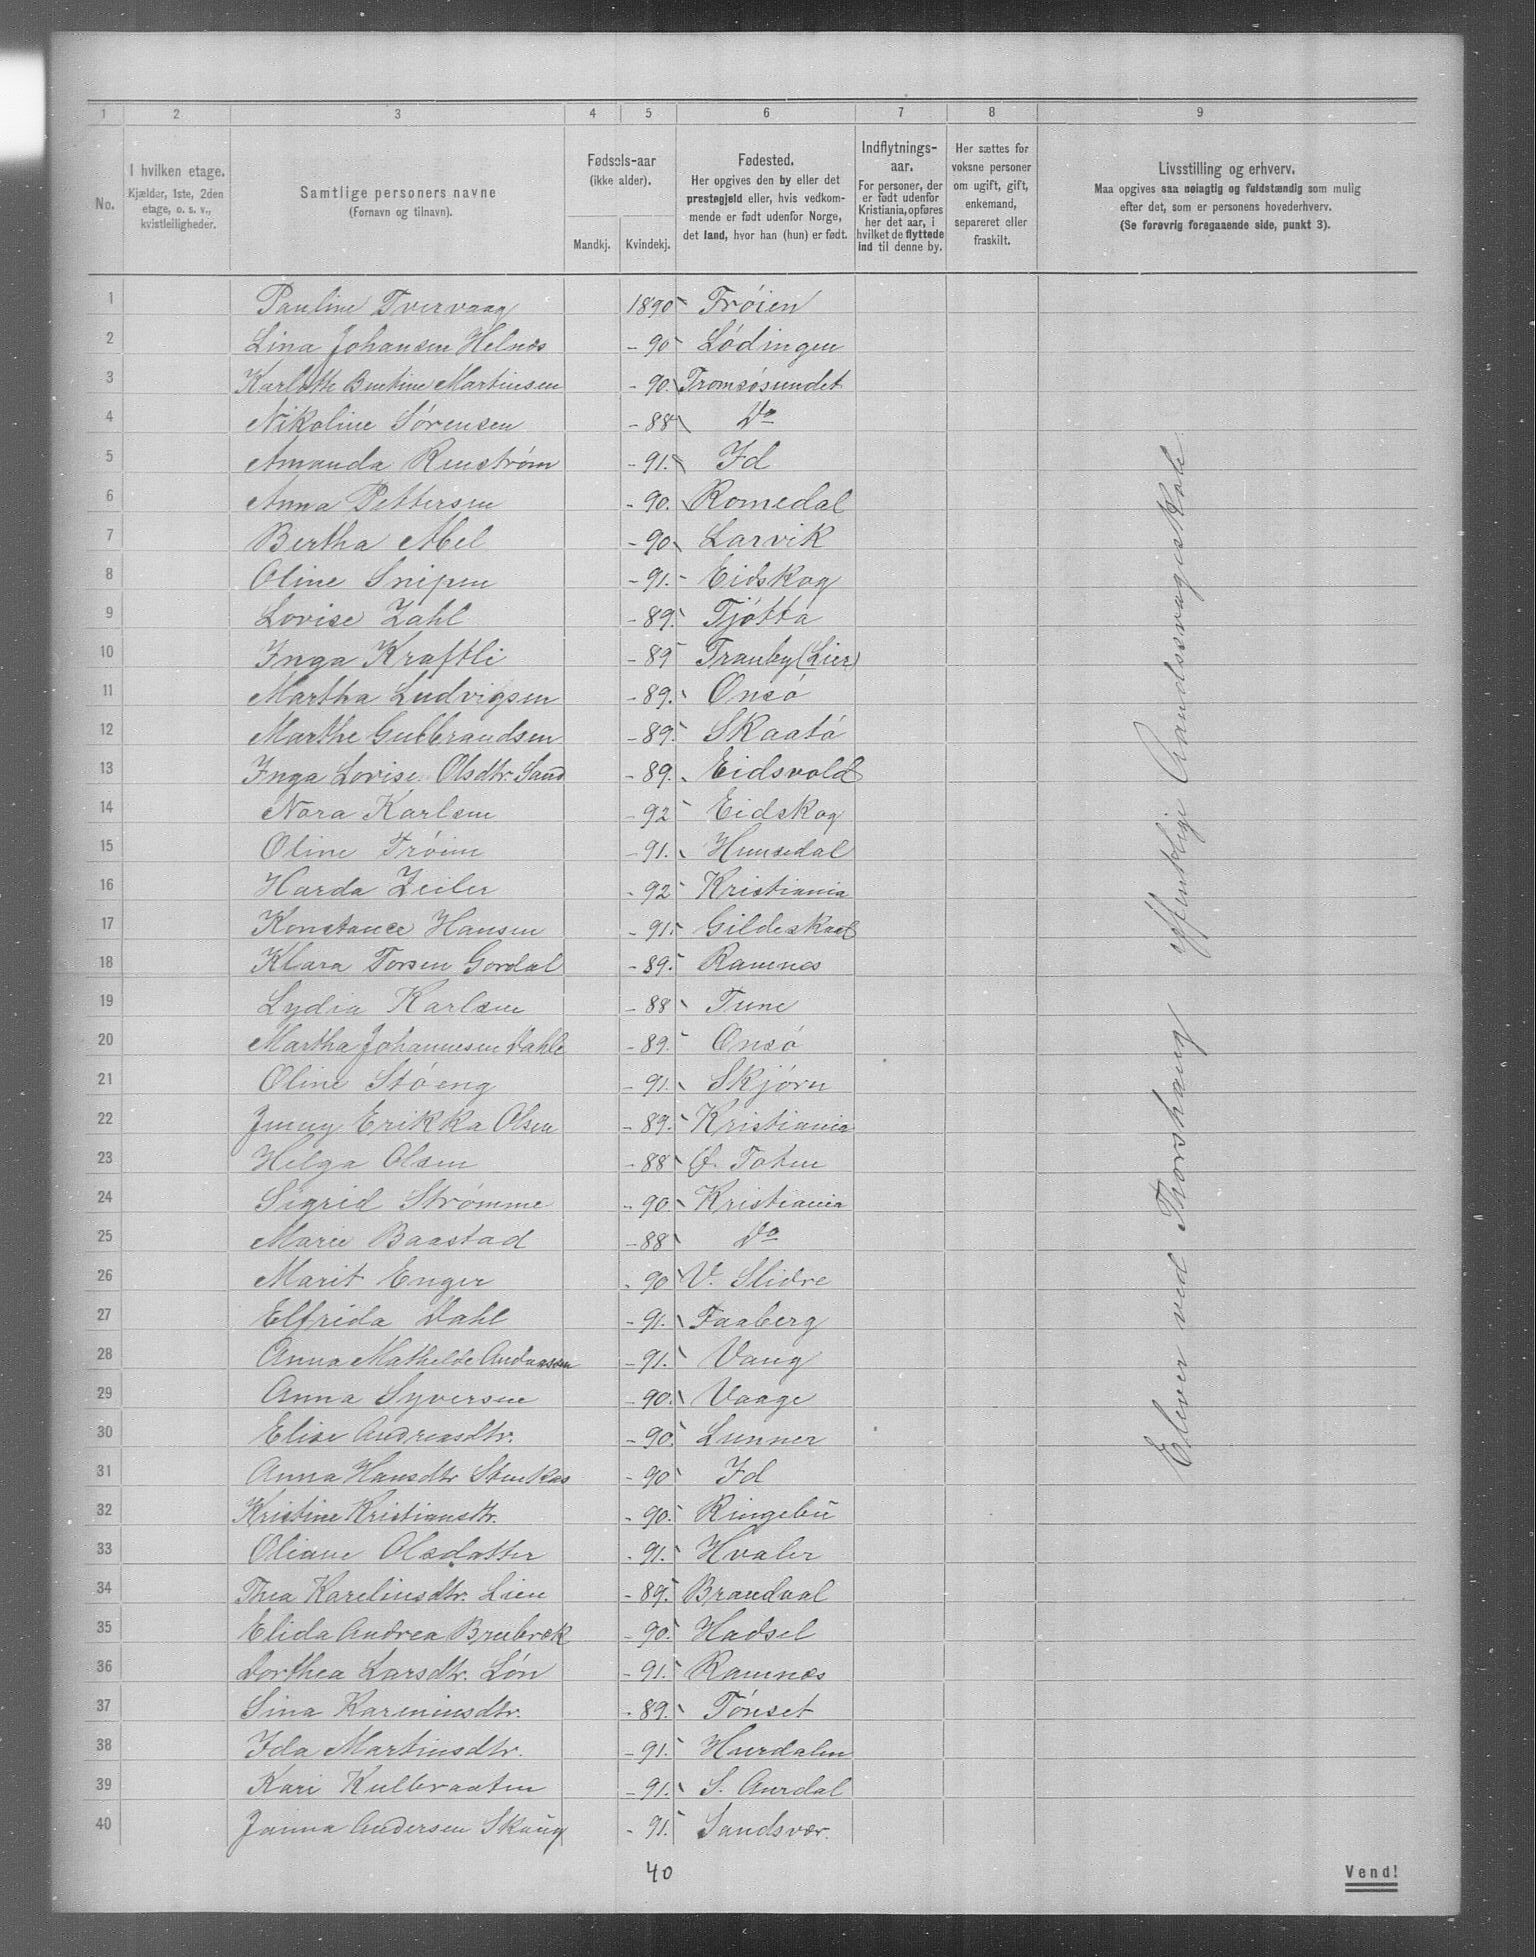 1 2 3 4 5 6 7 8 9
No.
I hvilken etage.
Kjælder, 1ste, 2den
etage, o. s. v.,
kvistleiligheder.
Samtlige personers navne
(Fornavn og tilnavn).
Fødsels-aar
(ikke alder).
Mandkj. Kvindekj.
Fødested.
Her opgives den by eller det
prestegjeld eller, hvis vedkom-
mende er født udenfor Norge,
det land, hvor han (hun) er født.
Indflytnings-
aar.
For personer, der
er født udenfor
Kristiania, opføres
her det aar, i
hvilket de flyttede
ind til denne by.
Her sættes for
voksne personer
om ugift, gift,
enkemand,
separeret eller
fraskilt.
Livsstilling og erhverv.
Maa opgives saa nøiagtig og fuldstændig som mulig
efter det, som er personens hovederhverv.
(Se forøvrig foregaaende side, punkt 3).
1 Pauline Tvervaag 1890 Trøien
2 Lina Johansen Helnæs - 90 Lødingen
3 Karlotte Bertine Martinsen - 90. Tromsøsundet
4 Nikoline Sørensen - 88 Do
5 Amanda Renstrøm - 91. Id
6 Anna Pettersen - 90. Romedal
7 Bertha Abel - 90 Larvik
8 Oline Snipen - 91. Eidskog
9 Lovise Zahl - 89. Tjøtta
10 Inga Kraftli - 89 Tranby (Lier)
11 Martha Ludvigsen - 89. Onsø
12 Marthe Gulbrandsen - 89. Skaatø
13 Inga Lovise Olsdtr. Sand - 89. Eidsvold
14 Nora Karlsen - 92 Eidskog
15 Oline Trøim - 91. Hemsedal
16 Harda Zeiler - 92 Kristiania
17 Konstance Hansen - 91. Gildeskaal
18 Klara Torsen Gordal - 89. Ramnes
19 Lydia Karlsen - 88 Tune
20 Martha Johannesen Dahle - 89. Onsø
21 Oline Støeng - 91. Skjørn
22 Jenny Erikka Olsen - 89. Kristiania
23 Helga Olsen - 88 Ø. Toten
24 Sigrid Strømme - 90. Kristiania
25 Marie Baastad - 88 Do
26 Marit Enger - 90 V. Slidre
27 Elfrida Dahl - 91. Faaberg
28 Anna Mathilde Andreassen - 91. Vang
29 Anna Syversen - 90. Vaage
30 Elise Andreasdtr. - 90. Lunner
31 Anna Hansdtr Stenkas - 90 Id
32 Kristine Kristiansdtr. - 90. Ringebu
33 Oleane Olsdatter - 91. Hvaler
34 Thea Karelinsdtr. Lien - 89. Brandval
35 Elida Andrea Brubrek - 90. Hadsel
36 Dorthea Larsdtr. Løn - 91. Ramnes
37 Sina Kareniusdtr. - 89. Tønset
38 Ida Martinsdtr. - 91. Hurdalen
39 Kari Kulbraaten - 91. S. Aurdal
40 Janna Andersen Skaug - 91. Sandsvær.
Elever ved Thorshaug offentlige Aandssvageskole
40
Vend!